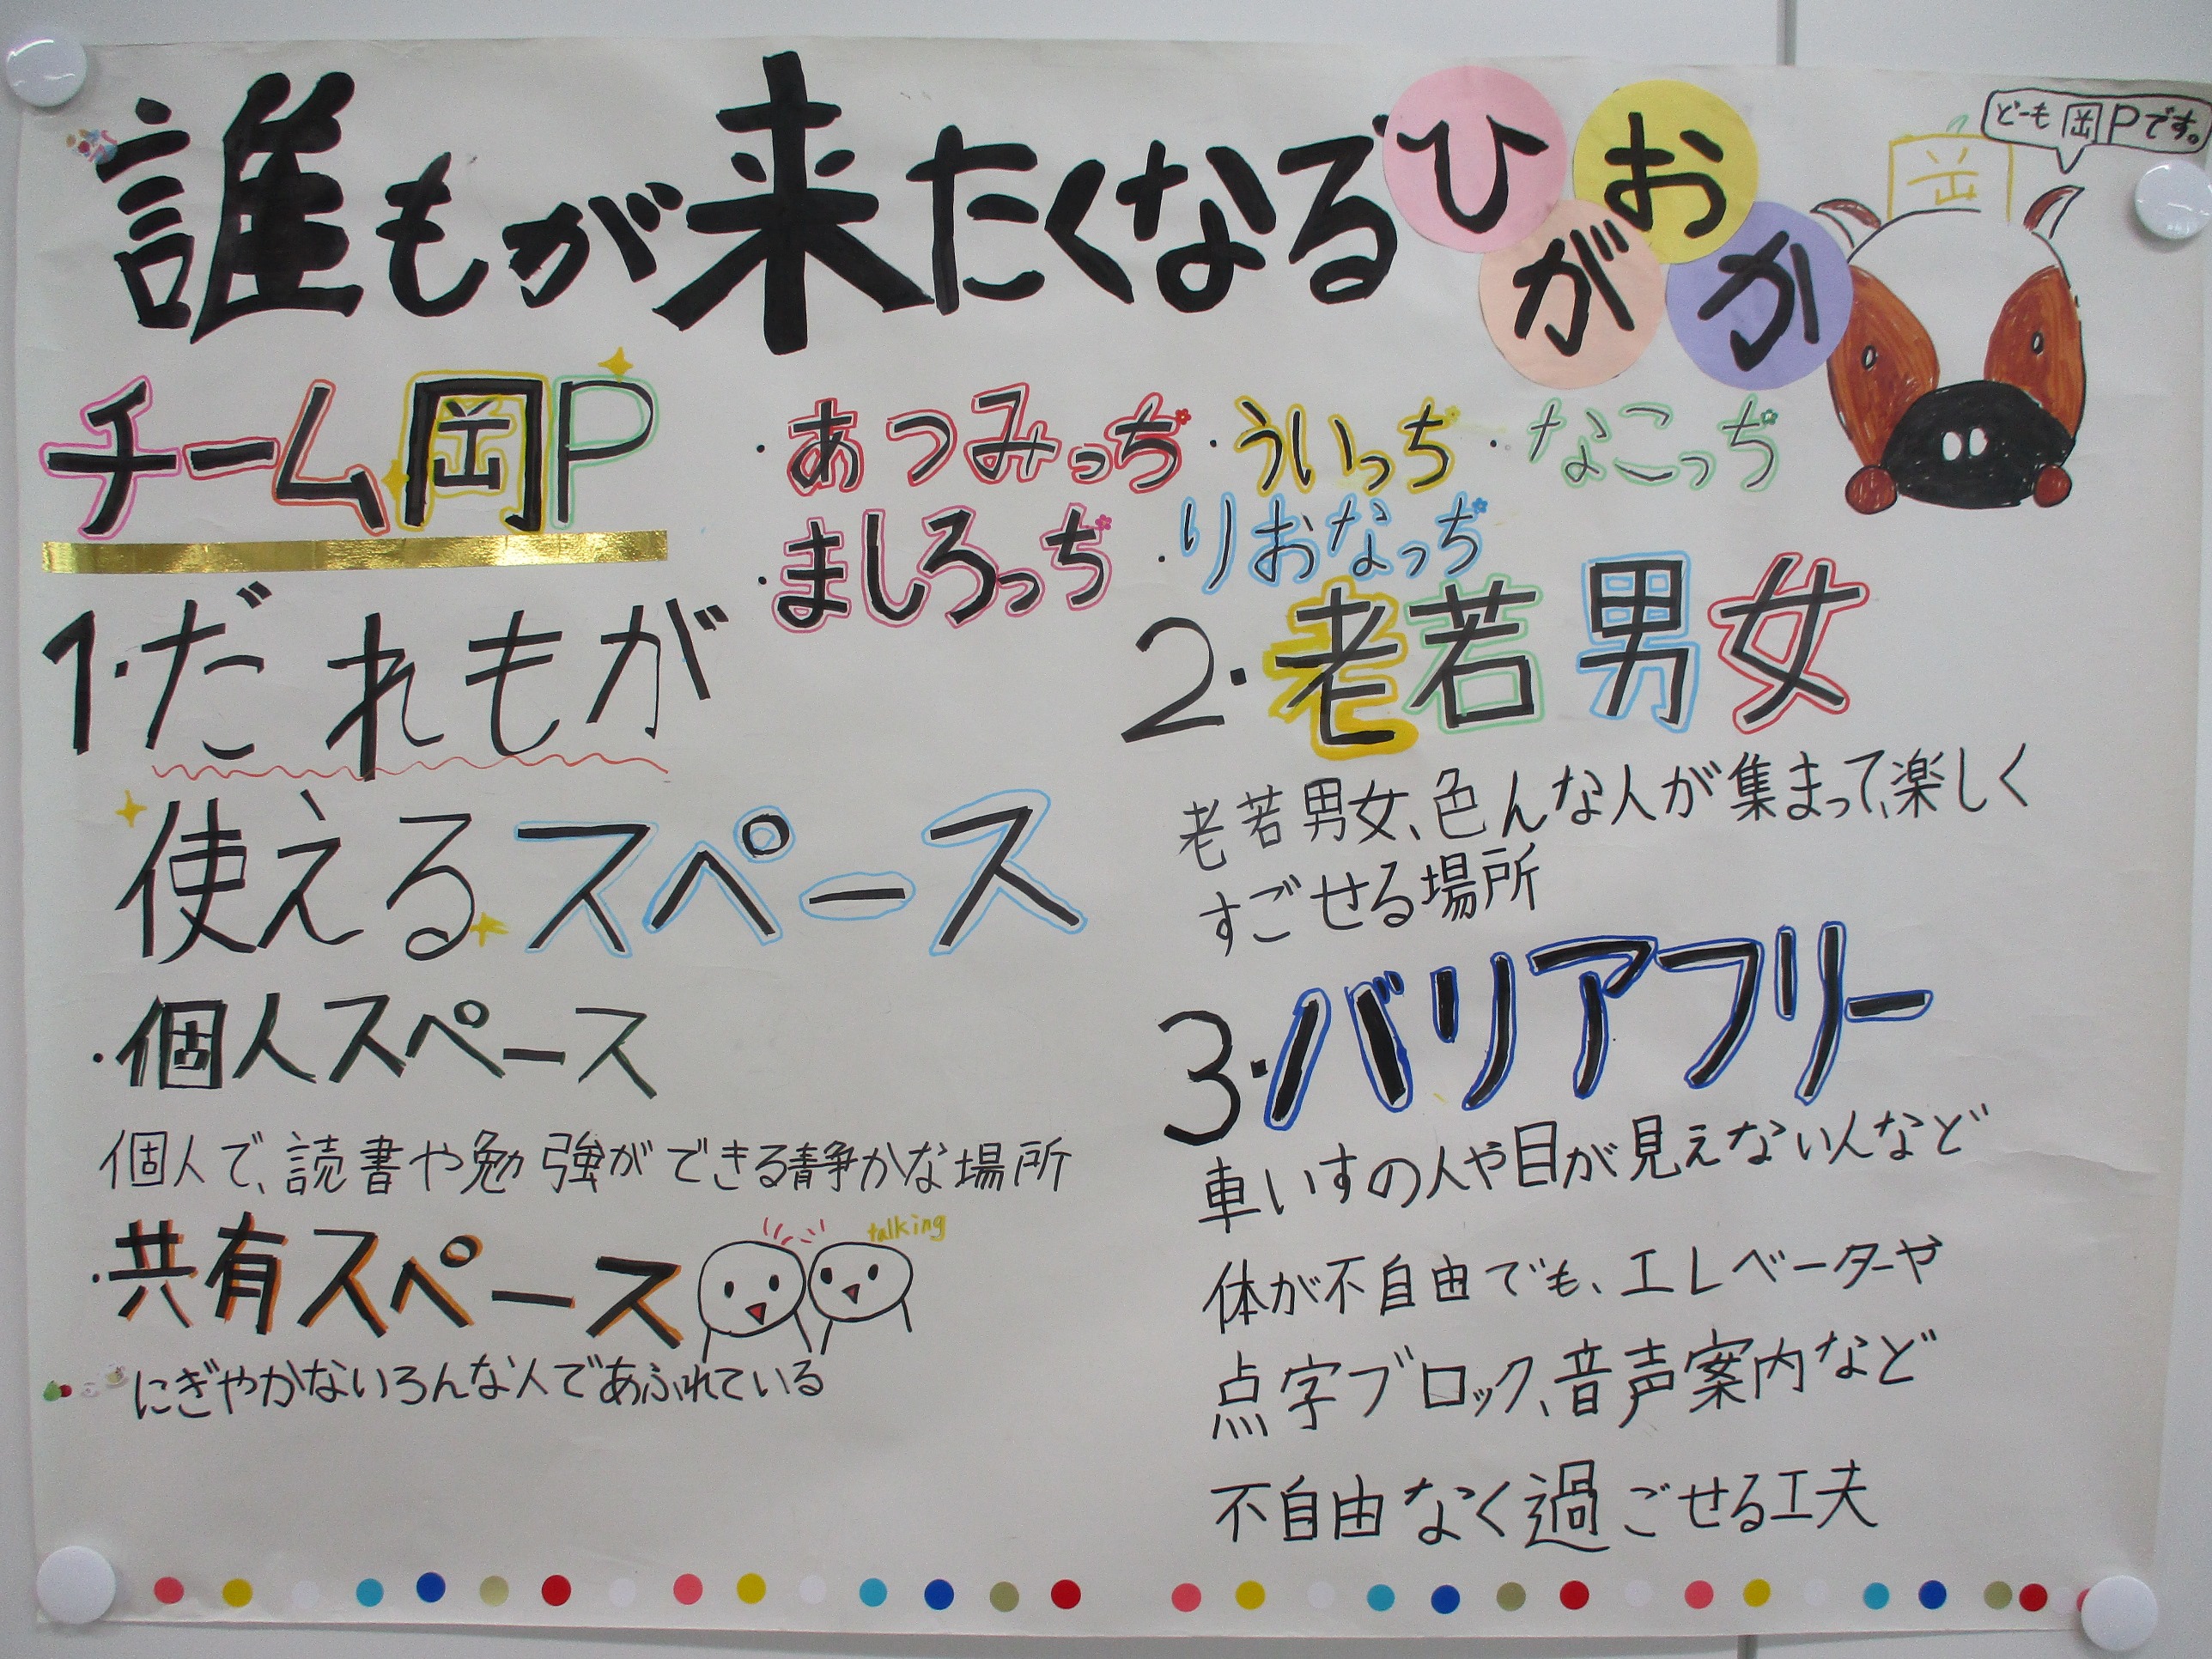 誰もが来たくなるひがおか
どーも岡Pです。
岡
チーム岡P
・あつみっち・ういっち・なこっち
・ましろっち・りおなっち
1.だれもが
使えるスペース
・個人スペース
個人で、読書や勉強ができる静かな場所
・共有スペース
talking
にぎやかないろんな人であふれている
2.老若男女
老若男女、色んな人が集まって、楽しく
すごせる場所
3.バリアフリー
車いすの人や目が見えない人など
体が不自由でも、エレベーターや
点字ブロック、音声案内など
不自由なく過ごせる工夫